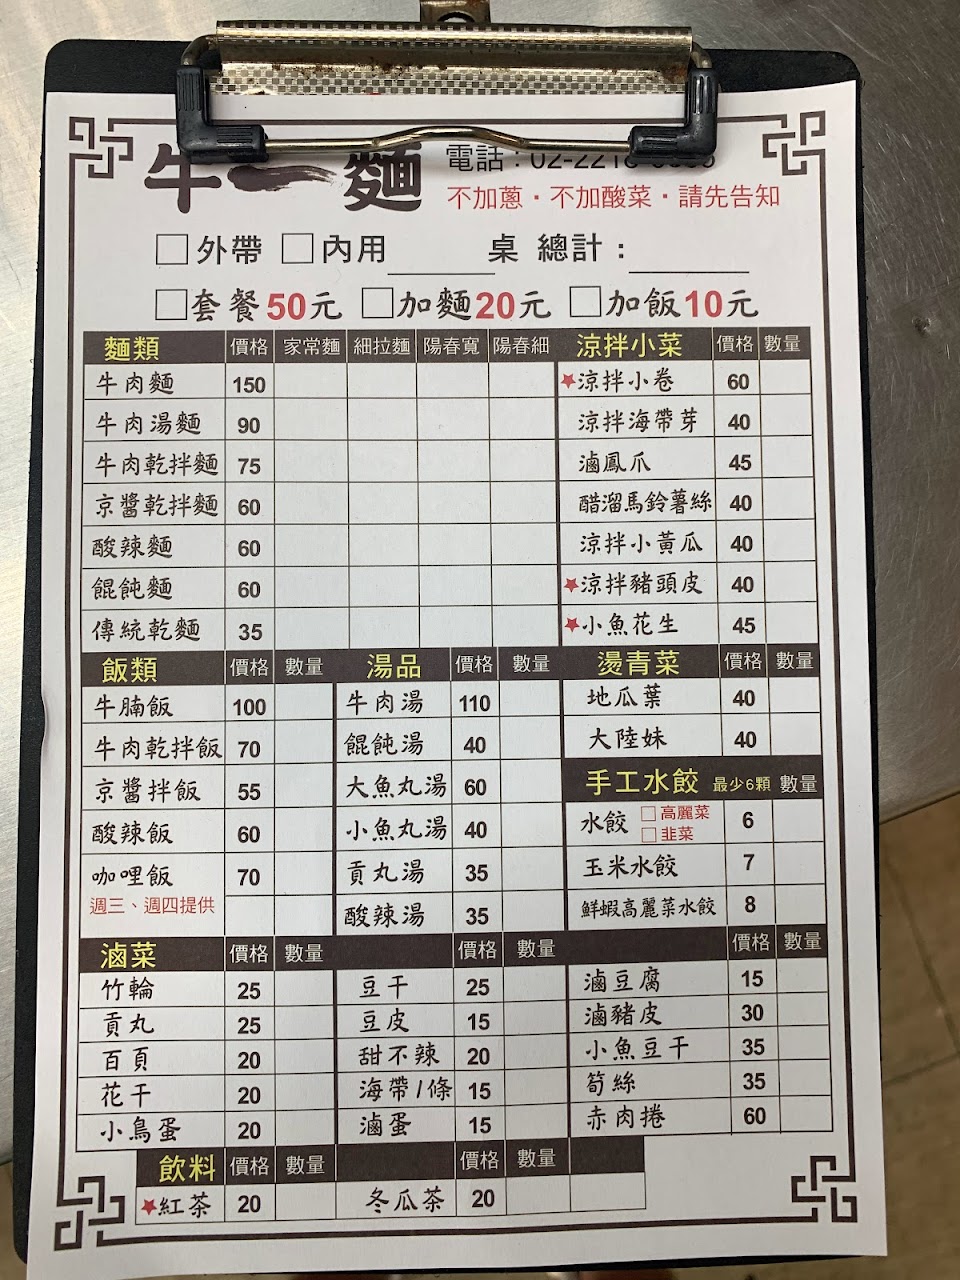 牛一麵
電話：02-22
不加蔥・不加酸菜・請先告知
□外帶 □內用 桌 總計：
□套餐50元 □加麵20元 □加飯10元
麵類 價格 家常麵 細拉麵 陽春寬 陽春細 涼拌小菜 價格 數量
牛肉麵 150 ★涼拌小卷 60
牛肉湯麵 90 涼拌海帶芽 40
牛肉乾拌麵 75 滷鳳爪 45
京醬乾拌麵 60 醋溜馬鈴薯絲 40
酸辣麵 60 涼拌小黃瓜 40
餛飩麵 60 ★涼拌豬頭皮 40
傳統乾麵 35 ★小魚花生 45
飯類 價格 數量 湯品 價格 數量 燙青菜 價格 數量
牛腩飯 100 牛肉湯 110 地瓜葉 40
牛肉乾拌飯 70 餛飩湯 40 大陸妹 40
京醬拌飯 55 大魚丸湯 60 手工水餃 最少6顆 數量
酸辣飯 60 小魚丸湯 40 水餃 □高麗菜 □韭菜 6
咖哩飯 70 貢丸湯 35 玉米水餃 7
週三、週四提供 酸辣湯 35 鮮蝦高麗菜水餃 8
滷菜 價格 數量 價格 數量 價格 數量
竹輪 25 豆干 25 滷豆腐 15
貢丸 25 豆皮 15 滷豬皮 30
百頁 20 甜不辣 20 小魚豆干 35
花干 20 海帶/條 15 筍絲 35
小鳥蛋 20 滷蛋 15 赤肉捲 60
飲料 價格 數量 價格 數量
★紅茶 20 冬瓜茶 20